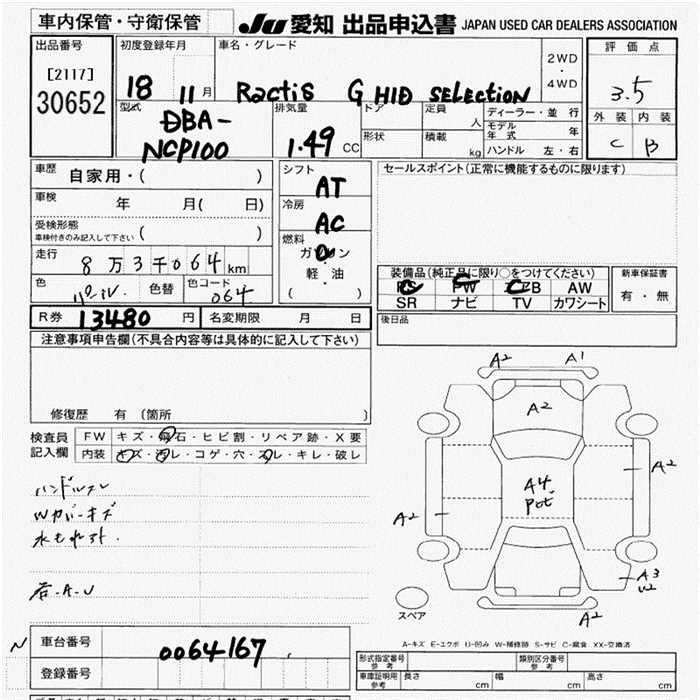 車内保管・守衛保管
JU 愛知 出品申込書 JAPAN USED CAR DEALERS ASSOCIATION
出品番号
[2117]
30652
初度登録年月
18 11 月
車名・グレード
Ractis G HID SELECTION
2WD
・
4WD
評価点
3.5
外装 内装
C B
型式
DBA-
NCP100
排気量
1.49 CC
ドア
形状
定員
人
積載
kg
ディーラー・並行
モデル年式 年
ハンドル 左・右
車歴
自家用・( )
車検
年 月( 日)
受検形態
車検付きのみ記入して下さい ( )
走行
8万3千064km
色
パール
色替
色コード
064
シフト
AT
冷房
AC
燃料
ガソリン
軽・油
( )
セールスポイント(正常に機能するものに限ります)
装備品(純正品に限り○をつけてください)
PS PW エアB AW
SR ナビ TV カワシート
新車保証書
有・無
R券 13480 円
名変期限 月 日
後日品
注意事項申告欄(不具合内容等は具体的に記入して下さい)
修復歴 有 〔箇所 〕
検査員
記入欄
FW キズ・飛石・ヒビ割・リペア跡・X要
内装 キズ・汚レ・コゲ・穴・スレ・キレ・破レ
ハンドルスレ
Wカバーキズ
水もれ跡.
右-A-U
A2 A1
A2
A4
Pet
A2
A2
A3
U2
A2
スペア
A-キズ E-エクボ U-凹み W-補修跡 S-サビ C-腐食 XX-交換済
N
車台番号
0064167
登録番号
形式指定番号
参考
類別区分番号
参考
車庫証明用
参考
長さ cm 幅 cm 高さ cm